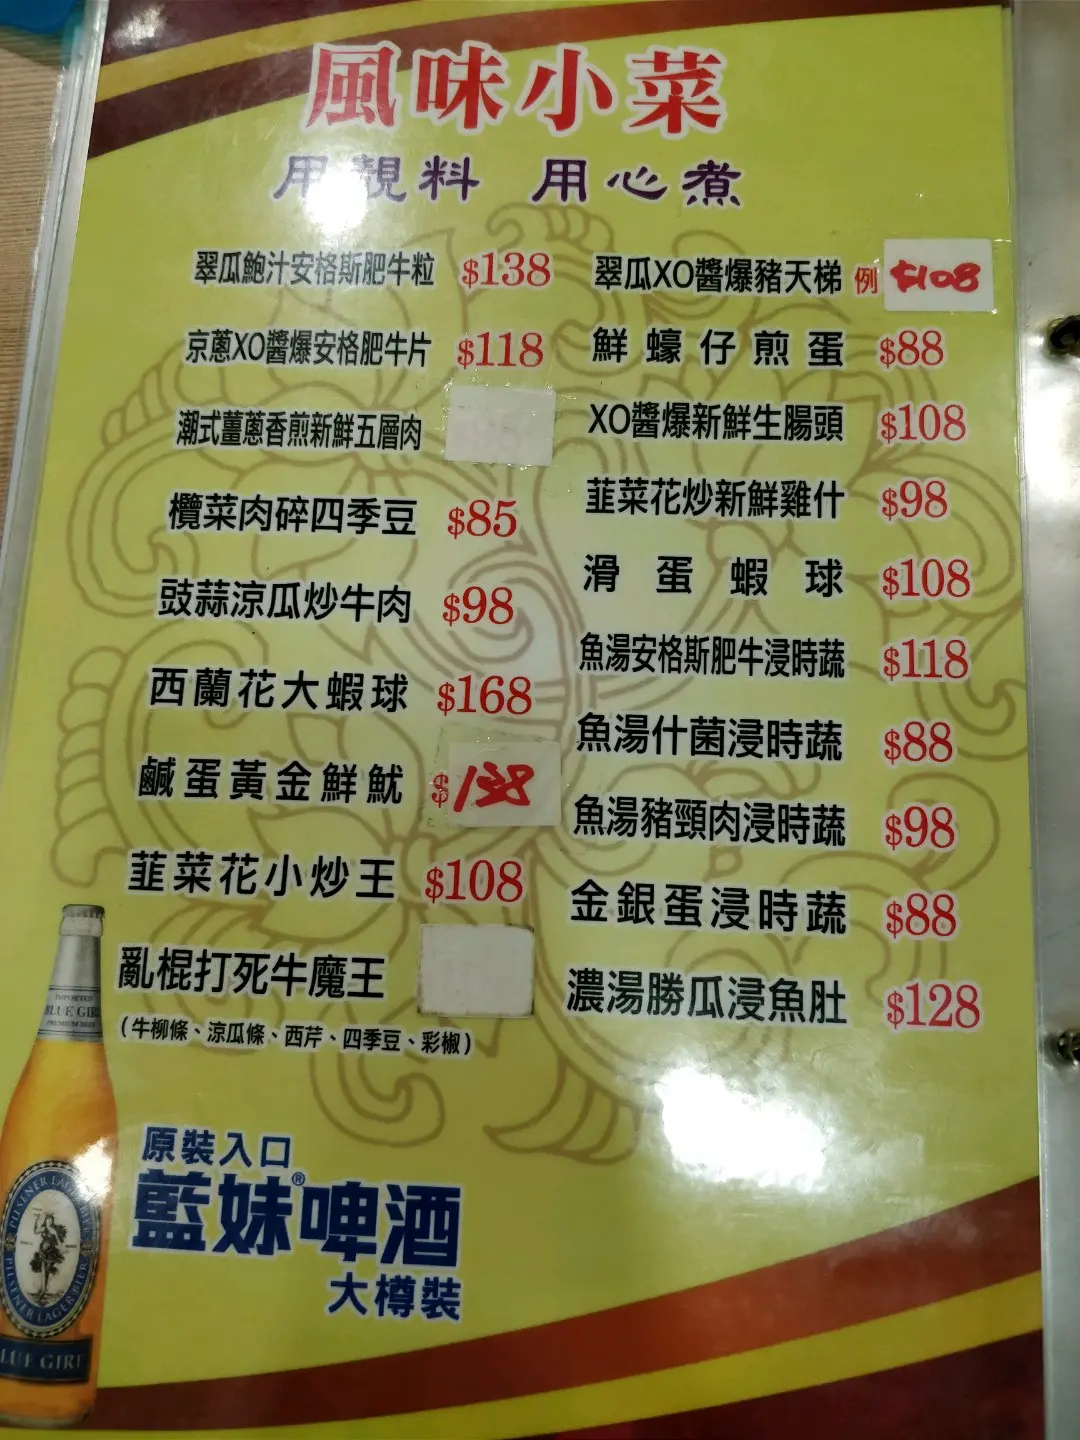 風味小菜
用靚料 用心煮
翠瓜鮑汁安格斯肥牛粒 $138
京蔥XO醬爆安格肥牛片 $118
潮式薑蔥香煎新鮮五層肉
欖菜肉碎四季豆 $85
豉蒜涼瓜炒牛肉 $98
西蘭花大蝦球 $168
鹹蛋黃金鮮魷 $138
韮菜花小炒王 $108
亂棍打死牛魔王
(牛柳條、涼瓜條、西芹、四季豆、彩椒)
翠瓜XO醬爆豬天梯 例 $108
鮮蠔仔煎蛋 $88
XO醬爆新鮮生腸頭 $108
韮菜花炒新鮮雞什 $98
滑蛋蝦球 $108
魚湯安格斯肥牛浸時蔬 $118
魚湯什菌浸時蔬 $88
魚湯豬頸肉浸時蔬 $98
金銀蛋浸時蔬 $88
濃湯勝瓜浸魚肚 $128
原裝入口
藍妹®啤酒
大樽裝
IMPORTED
BLUE GIR
PREMIUM BEER
PILSENER LAGER BIER
PILSENER LAGER BIER
LUE GIRL